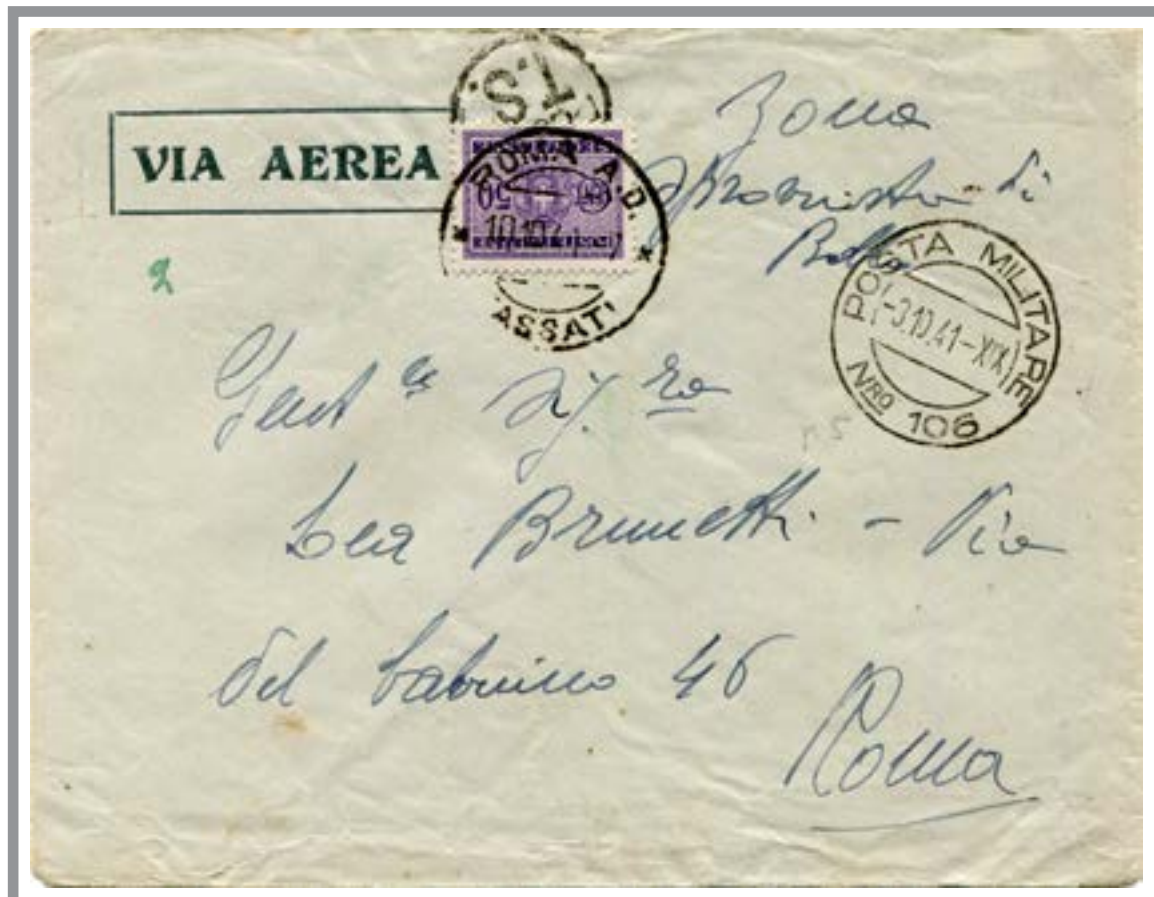 T.S.
VIA AEREA
ROMA A.D.
50
10.10.41
ASSATI
Zona
sprovvista di
Bolli
POSTA MILITARE
-3.10.41-XIX
NRO 106
2
Gent ma Sig. ra
Lea Brunetti - Via
del Babuino 46
Roma